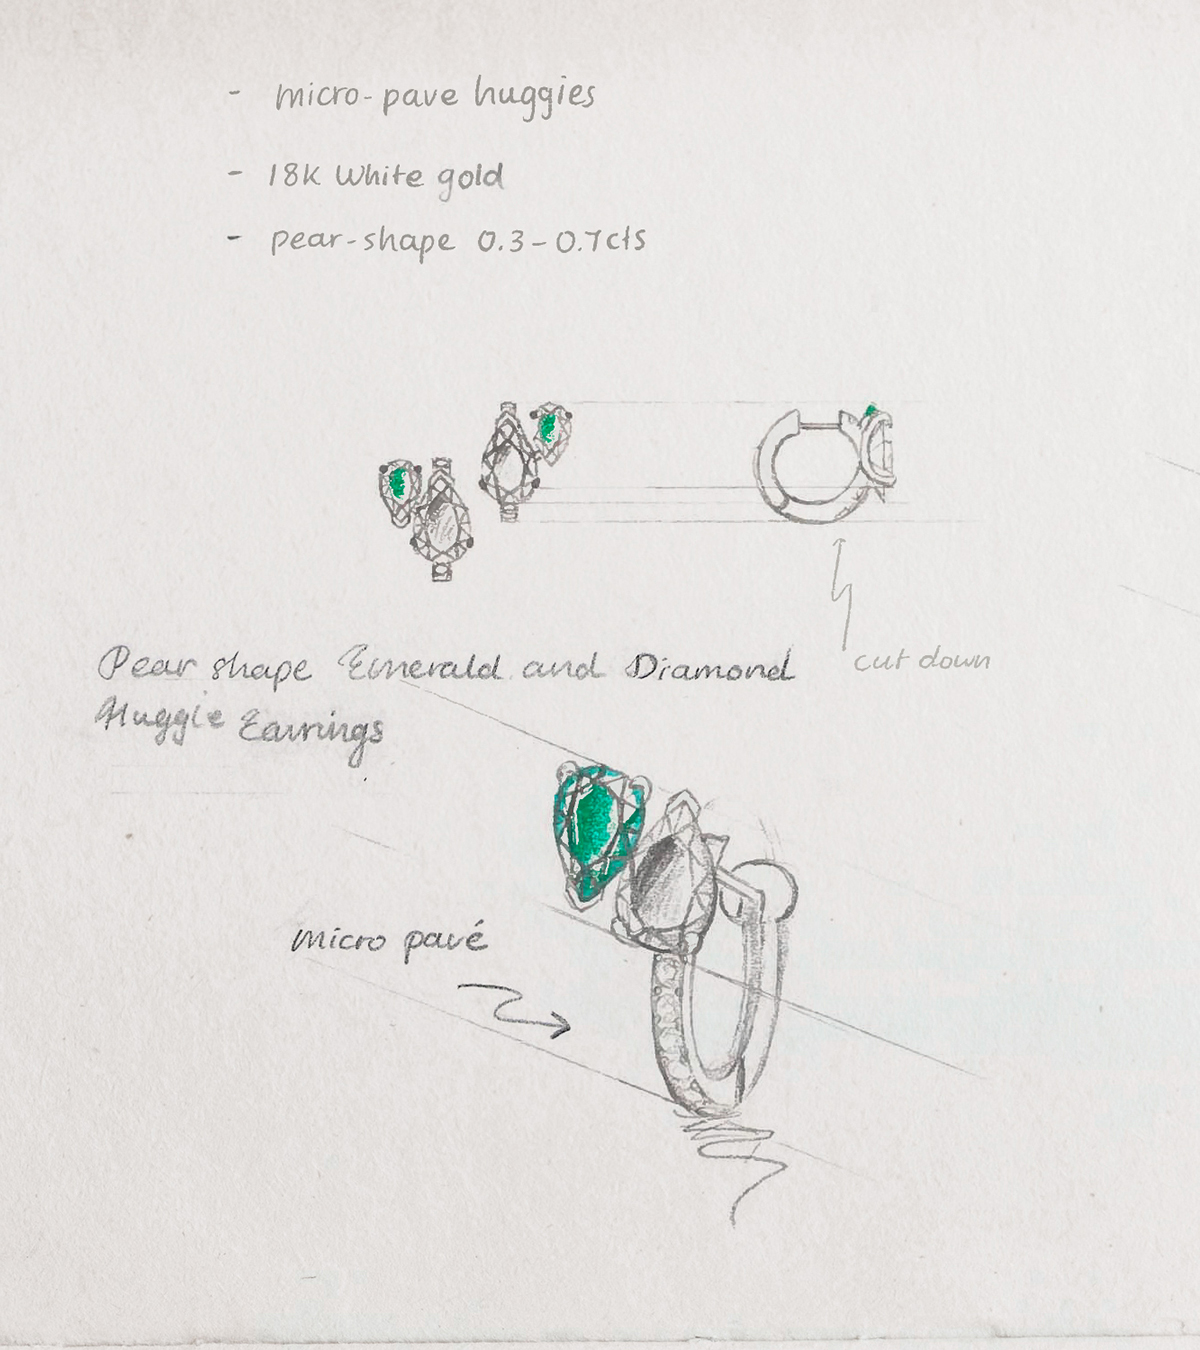 - micro-pave huggies
- 18K White gold
- pear-shape 0.3-0.7cts
cut down
Pear shape Emerald and Diamond
Huggie Earrings
micro pavé